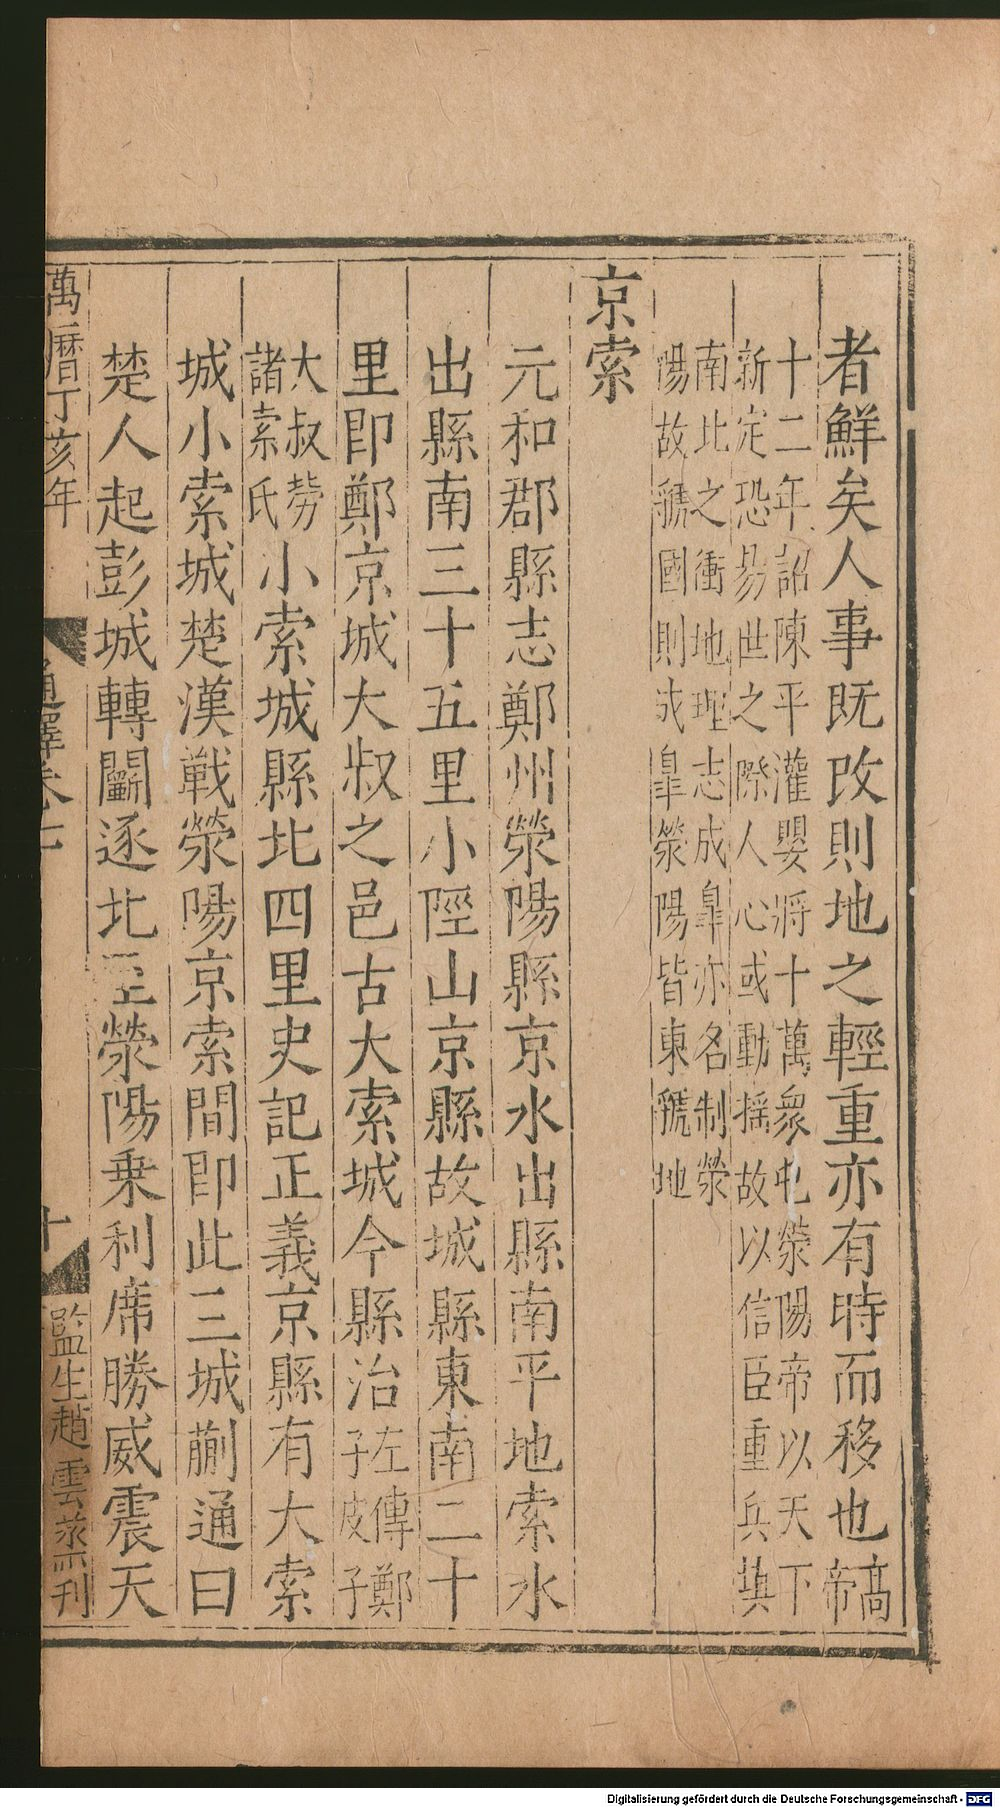 者鮮矣人事既改則地之輕重亦有時而移也高帝
十二年詔陳平灌嬰將十萬衆屯滎陽帝以天下
新定恐易世之際人心或動揺故以信臣重兵填
南北之衝地理志成皐亦名制滎
陽故虢國則成皐滎陽皆東虢地
京索
元和郡縣志鄭州滎陽縣京水出縣南平地索水
出縣南三十五里小陘山京縣故城縣東南二十
里即鄭京城大叔之邑古大索城今縣治左傳鄭子皮子
大叔勞諸索氏小索城縣北四里史記正義京縣有大索
城小索城楚漢戰滎陽京索間即此三城蒯通曰
楚人起彭城轉鬭逐北至滎陽乗利席勝威震天
萬曆丁亥年
通釋卷七
十
監生趙雲蒸刊
Digitalisierung gefördert durch die Deutsche Forschungsgemeinschaft - DFG